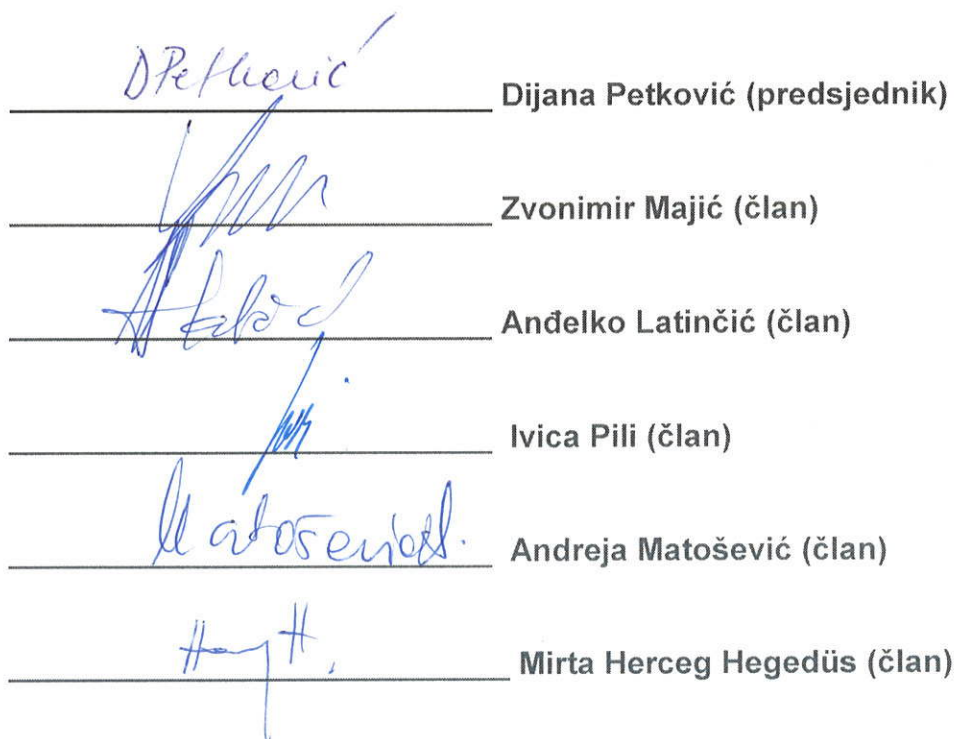 DPetković Dijana Petković (predsjednik)
Zvonimir Majić (član)
Anđelko Latinčić (član)
Ivica Pili (član)
Matošević A. Andreja Matošević (član)
Mirta Herceg Hegedüs (član)